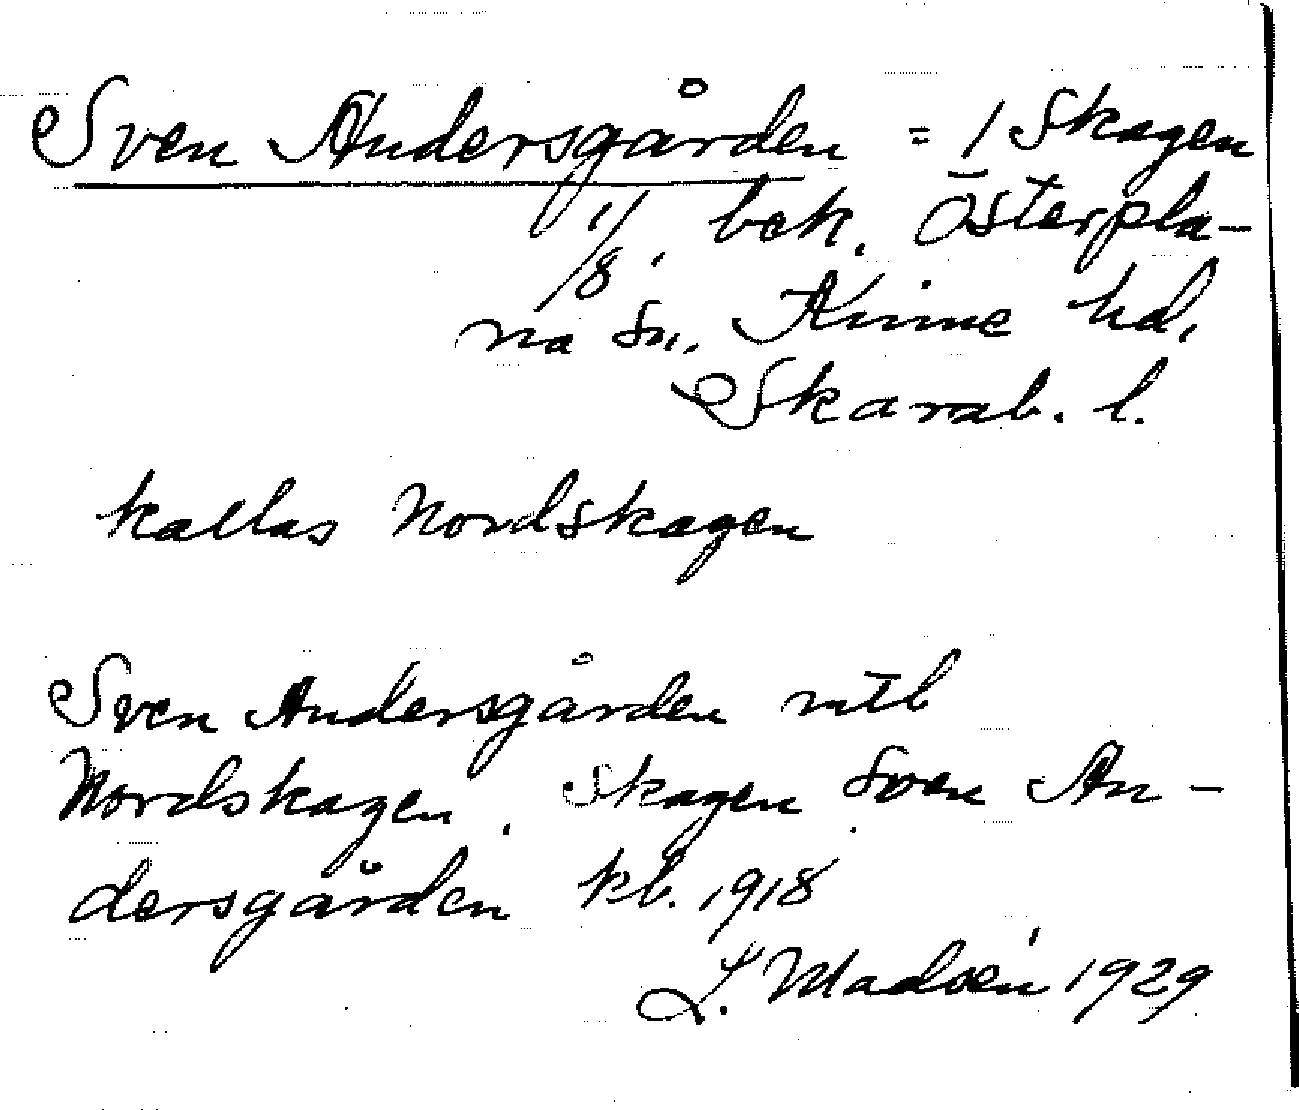 Sven Andersgården = 1 Skagen
1/8, bek. Österpla-
na sn. Kinne hd,
Skarab. l.
kallas Nordskagen
Sven Andersgården mtl
Nordskagen, Skagen Sven An-
dersgården kb. 1918
L. Modéen 1929